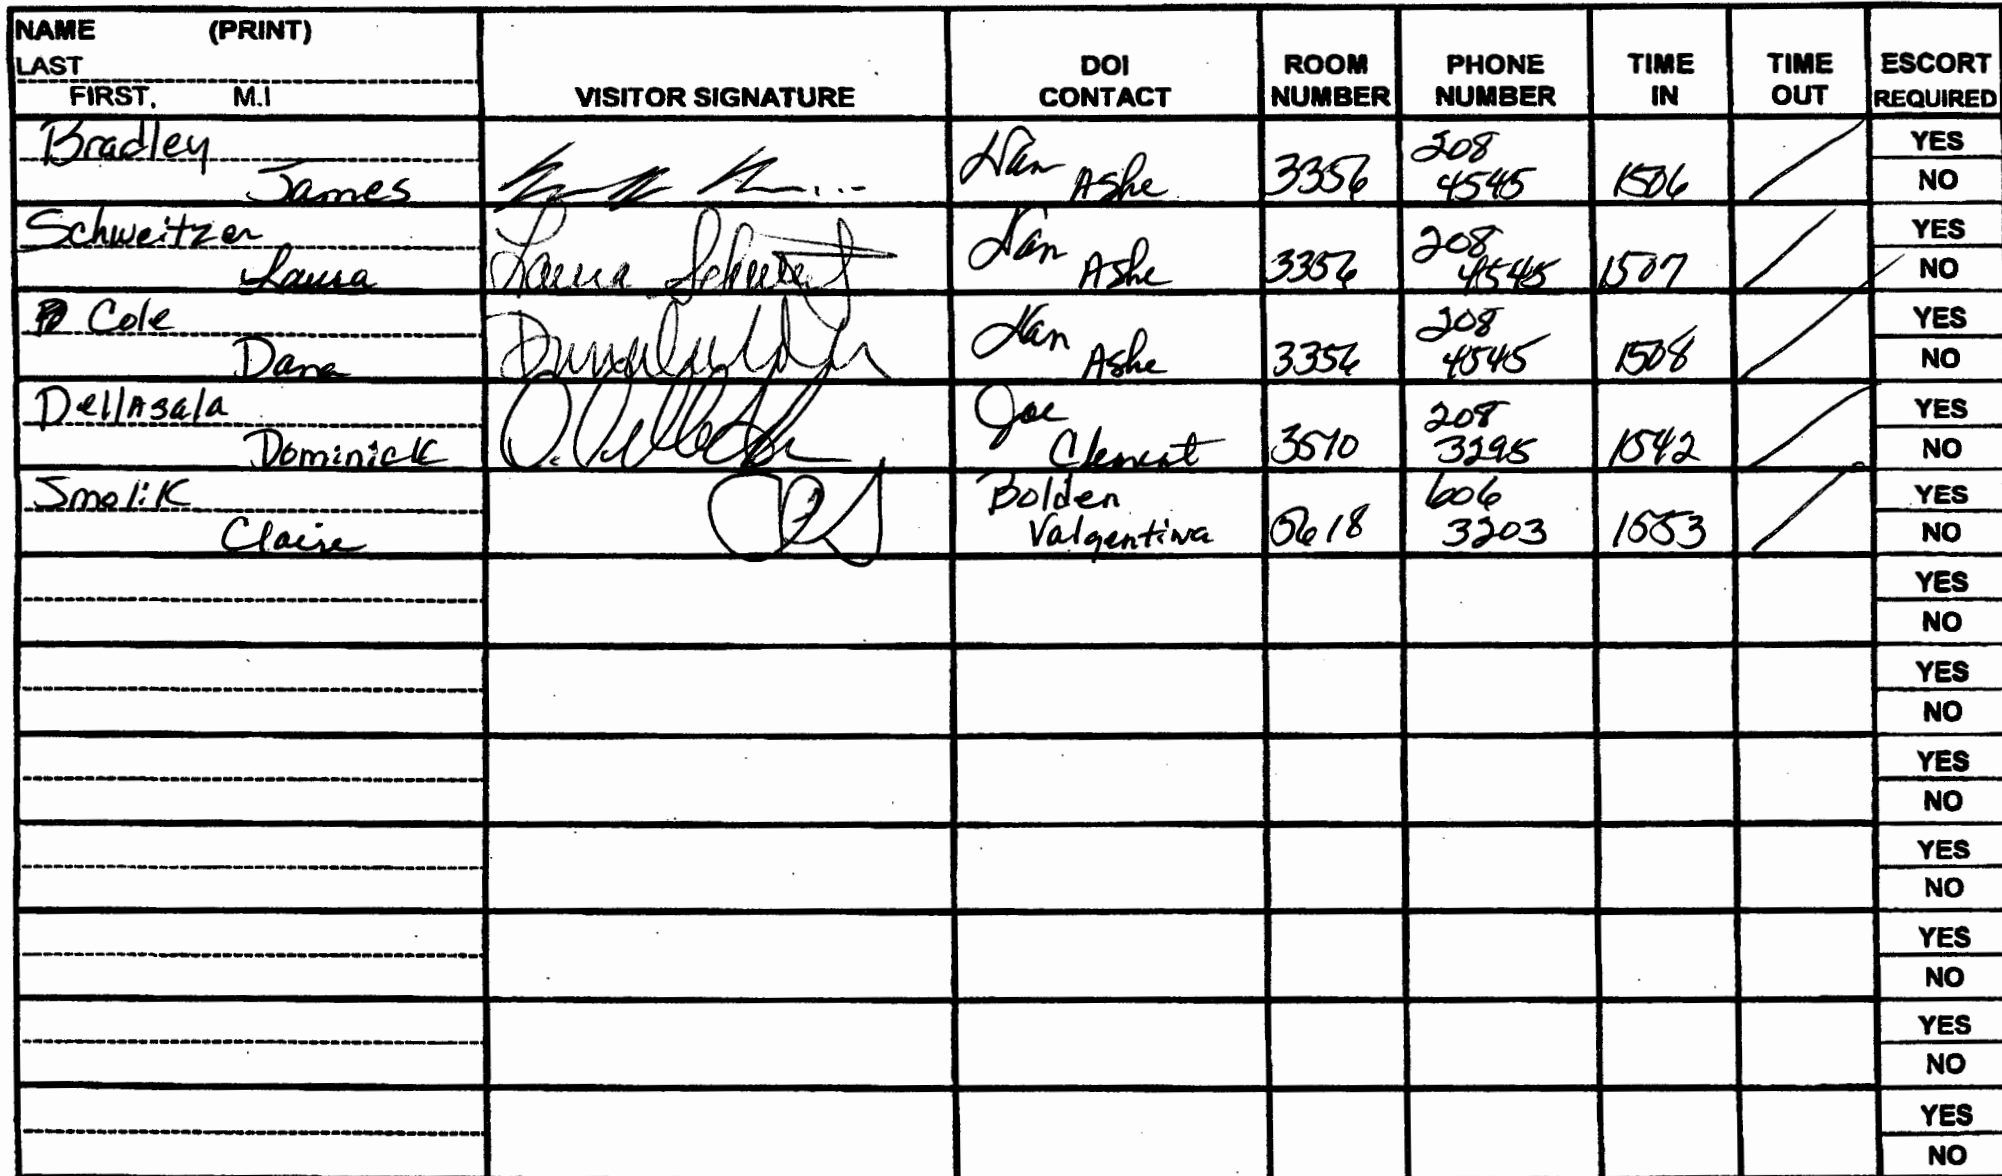 NAME (PRINT)
LAST
FIRST, M.I
VISITOR SIGNATURE
DOI CONTACT
ROOM NUMBER
PHONE NUMBER
TIME IN
TIME OUT
ESCORT REQUIRED
Bradley
James
Ashe
3356
208
4545
1506
YES
NO
Schweitzer
Laura
Laura
Ashe
3356
208
4545
1507
YES
NO
Cole
Dana
Ashe
3356
208
4545
1508
YES
NO
DellAsala
Dominick
Joe
Clement
3570
208
3295
1542
YES
NO
Smolik
Claire
Bolden
Valgentina
0618
606
3203
1553
YES
NO
YES
NO
YES
NO
YES
NO
YES
NO
YES
NO
YES
NO
YES
NO